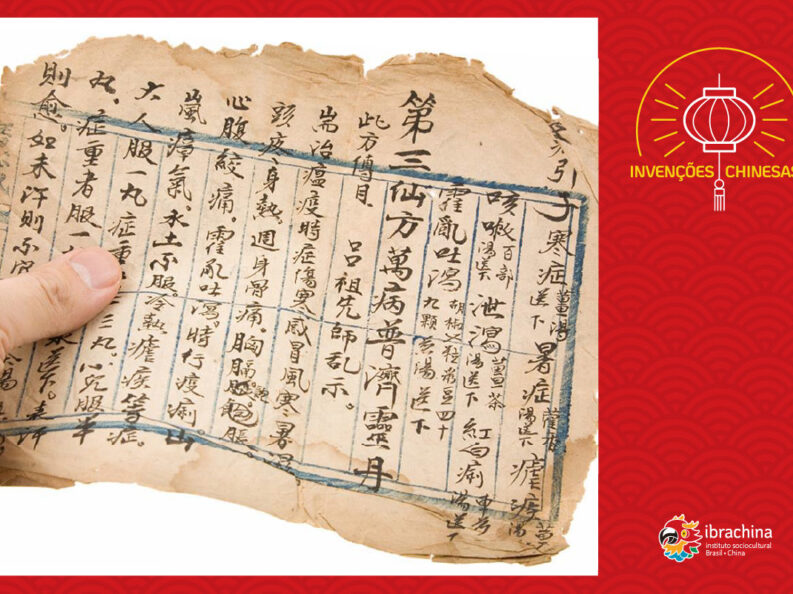 引子 寒症 薑湯送下 暑症 湯送下 瘧疾
咳嗽 百部湯送下 泄瀉 薑茶湯送下 紅白痢 車前湯送下
霍亂吐瀉 胡椒 粒菉豆四十九顆 湯送下
第三仙方萬病普濟靈丹
此方傳自 呂祖先師乩示。
耑治瘟疫時症傷寒感冒風寒暑濕
頭疼身熱。週身骨痛。胸膈飽脹
心腹絞痛。霍亂吐瀉。時行疫痢。山
嵐瘴氣。水土不服。冷熱瘧疾等症。
大人服一丸 症重 三丸。小兒服半
丸。症重者服一 送下。 汗
則愈。如未汗則不
INVENÇÕES CHINESAS
ibrachina
instituto sociocultural
Brasil • China